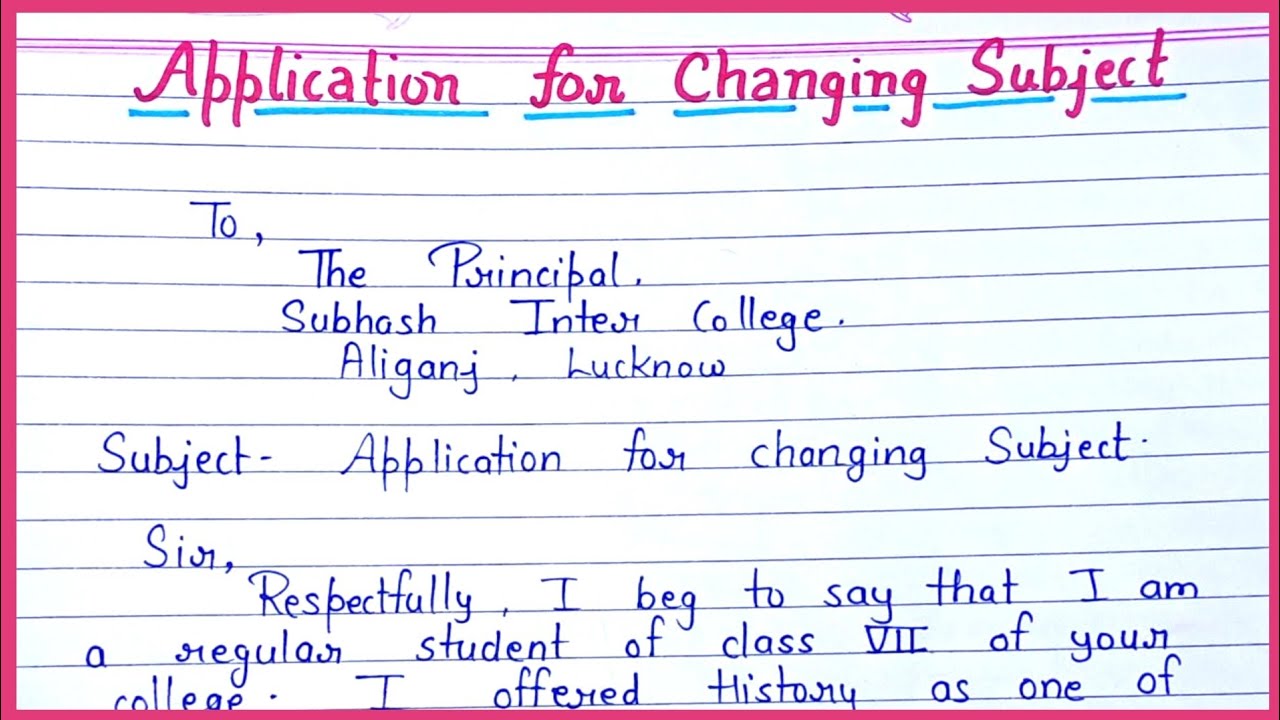 Application for Changing Subject
To,
The Principal.
Subhash Inter College.
Aliganj, Lucknow
Subject- Application for changing Subject.
Sir,
Respectfully, I beg to say that I am
a regular student of class VII of your
college. I offered History as one of